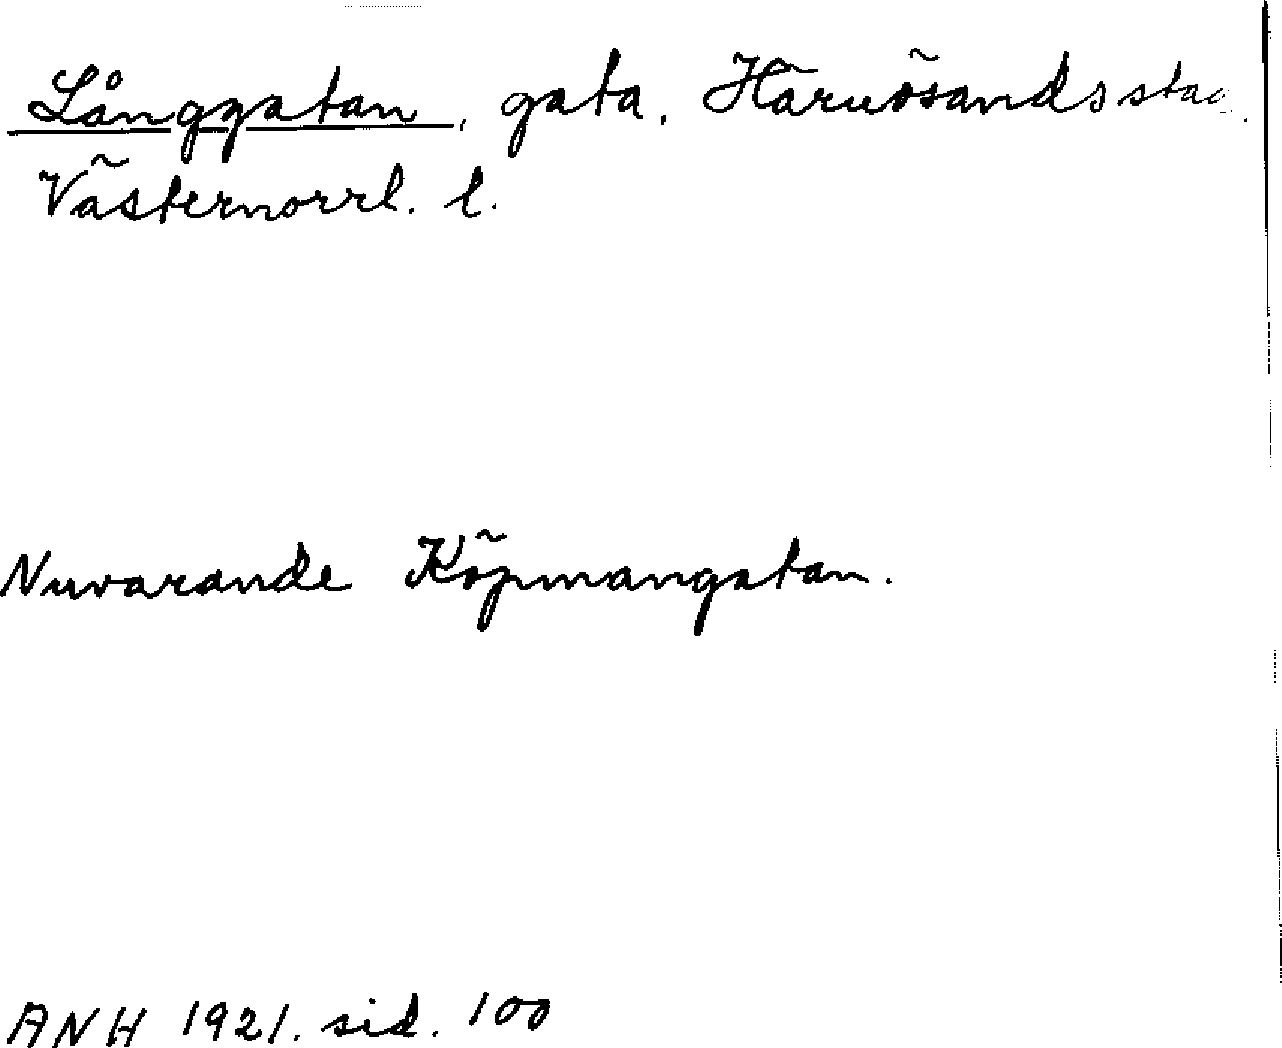 Långgatan, gata, Härnösands stad.
Västernorrl. l.
Nuvarande Köpmangatan.
ANH 1921. sid. 100